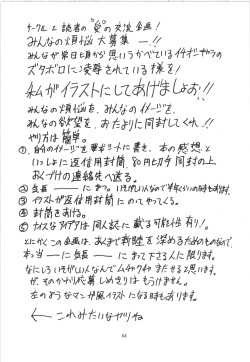 サークルと読者の"愛"の交流企画!
みんなの煩悩大募集ー!!
みんなが常日頃から思いうかべている
ズタボロに愛辱されている様を!
私がイラストにしてあげましょお!!
みんなの煩悩を、みんなのイメージを、
みんなの欲望を、おたよりに同封してくれ!!
やり方は簡単。
①、自分のイメージを便せんに書き、本の感想と
いっしょに返信用封筒、80円切手同封の上、
おくづけの連絡先へ送る。
② 気長ーーにまつ。いそがしい人なので半年くらいの時もあります。
③ イラストが返信用封筒にのってやってくる。
④ 封筒をあける。
⑤ ナイスなアイデアは同人誌に載る可能性有り!。
とにかくこの企画は、みんなで親睦を深めるためのものなので、
本当ーーに気長ーーにまって下さる人に限ります。
なにしろいそがしい人なんでムチャクチャまたせると思います。
が、そのかわり応募しめきりはもうけません。
左のようなマンガ風イラストになる時もあります。
← これみたいなヤツね